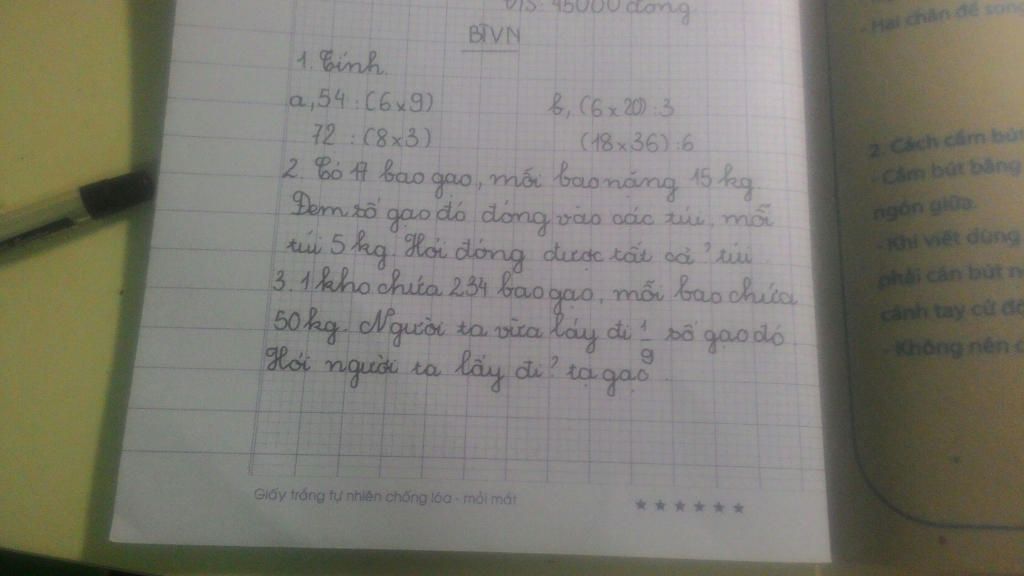 Đ/S: 45000 đồng
BTVN
1. Tính.
a, 54 : (6 x 9)
b, (6 x 20) : 3
72 : (8 x 3)
(18 x 36) : 6
2. Có 17 bao gạo, mỗi bao nặng 15 kg.
Đem số gạo đó đóng vào các túi, mỗi
túi 5 kg. Hỏi đóng được tất cả ? túi
3. 1 kho chứa 234 bao gạo, mỗi bao chứa
50 kg. Người ta vừa lấy đi 1/9 số gạo đó
Hỏi người ta lấy đi ? tạ gạo.
Giấy trắng tự nhiên chống lóa - mỏi mắt
- Hai chân để song
2. Cách cầm bút
- Cầm bút bằng
ngón giữa.
- Khi viết dùng
phải cán bút
cánh tay cử
- Không nên